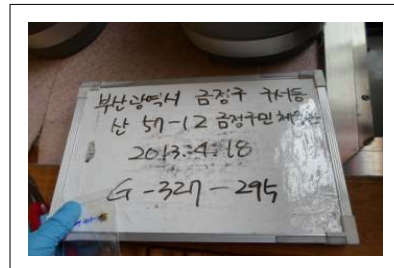 부산광역시 금정구 구서동
산 57-12 금정구민체육관
2013.4.18
G-327-295